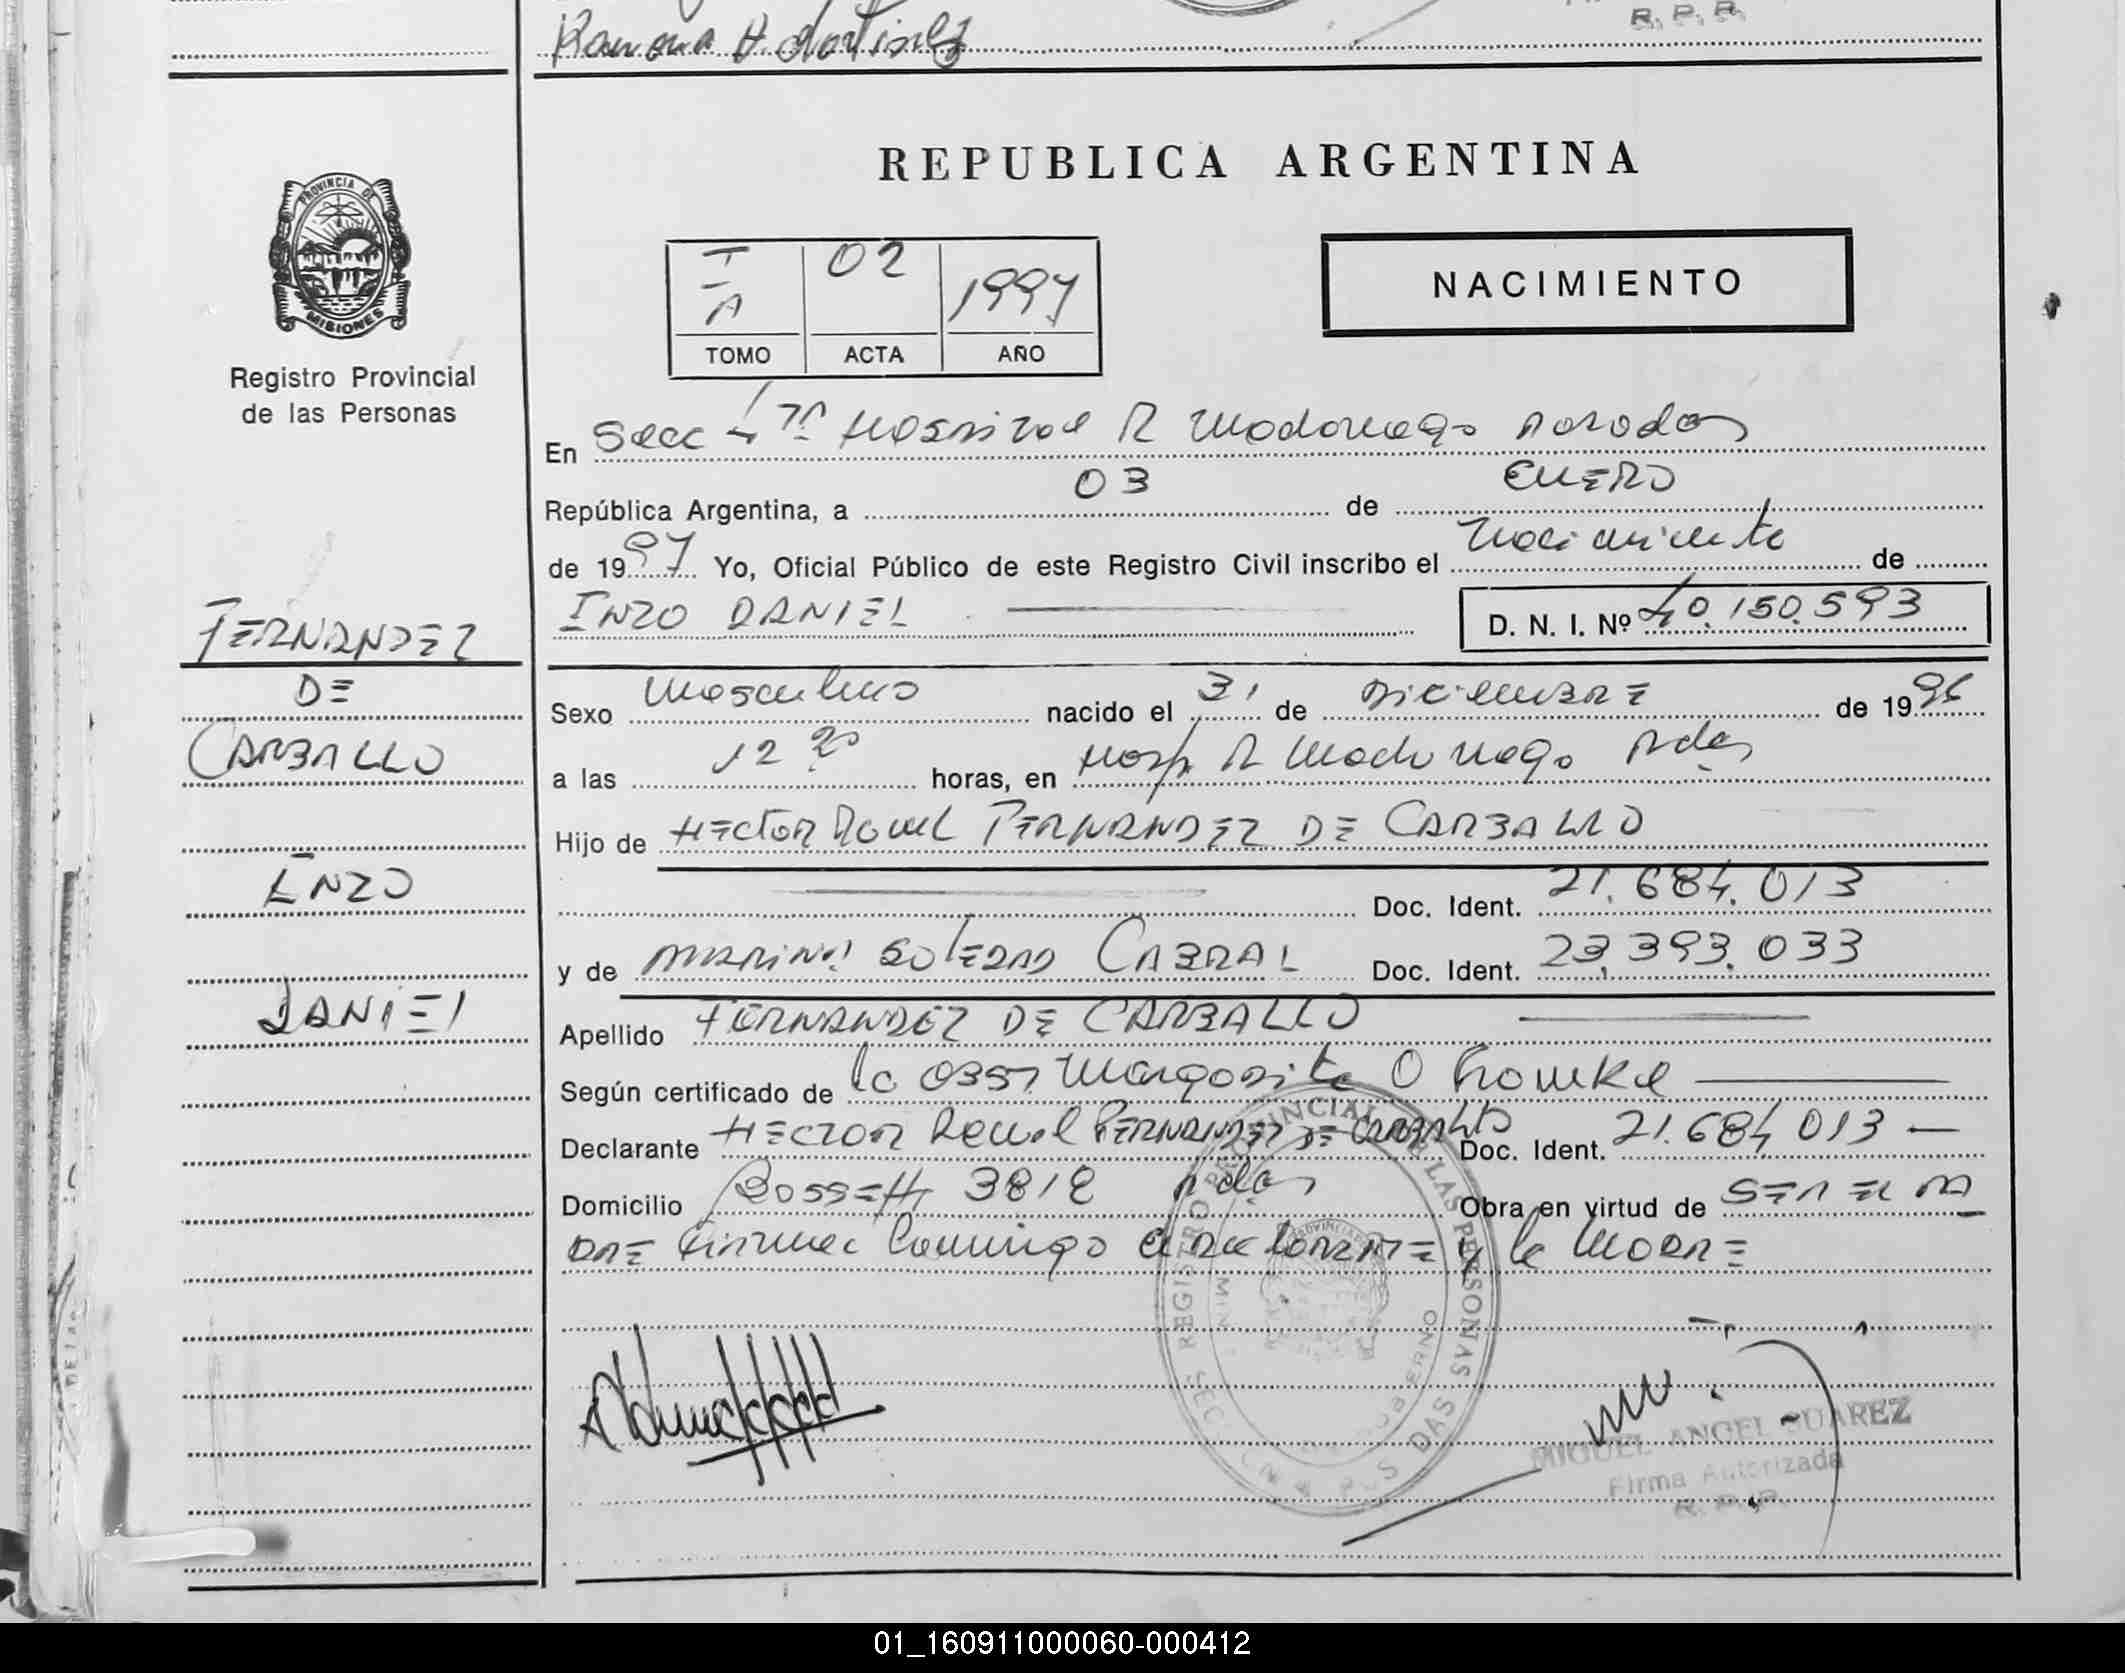 Ramona A.
R. P. R.
REPUBLICA ARGENTINA
PROVINCIA DE
MISIONES
Registro Provincial
de las Personas
I
A
02
1997
TOMO ACTA AÑO
NACIMIENTO
En Secc Hospital R Madariaga Posadas
República Argentina, a 03 de ENERO
de 1997 Yo, Oficial Público de este Registro Civil inscribo el Nacimiento de
ENZO DANIEL D. N. I. Nº 40.150.593
FERNANDEZ
DE
CARBALLO
ENZO
DANIEL
Sexo Masculino nacido el 31 de DICIEMBRE de 1996
a las 12 horas, en Hosp R Madariaga Pdas
Hijo de HECTOR FERNANDEZ DE CARBALLO
Doc. Ident. 21.684.013
y de MARINA SOLEDAD CABRAL Doc. Ident. 23.393.033
Apellido FERNANDEZ DE CARBALLO
Según certificado de la Obst Margarita O
Declarante HECTOR FERNANDEZ DE CARBALLO Doc. Ident. 21.684.013
Domicilio 3818 Pdas Obra en virtud de SER EL PA
DRE Firma Conmigo el declarante y la MADRE
REGISTRO PROVINCIAL DE LAS PERSONAS
MIGUEL ANGEL SUAREZ
Firma Autorizada
R. P. P.
01_160911000060-000412